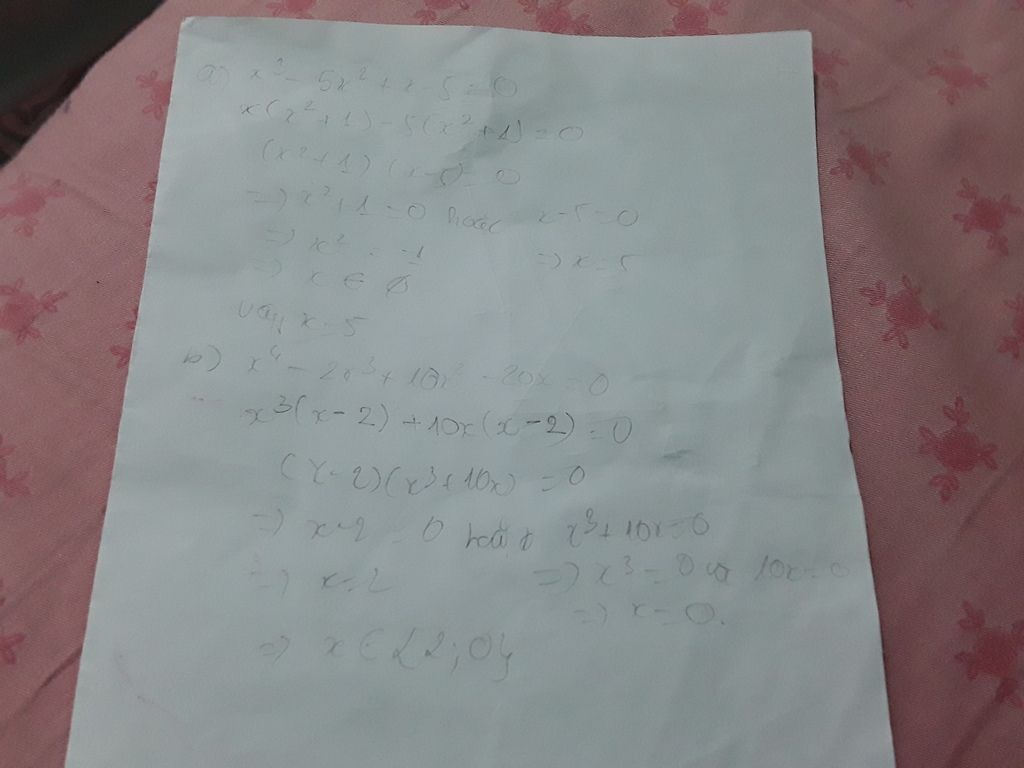 a) x³ - 5x² + x - 5 = 0
x(x² + 1) - 5(x² + 1) = 0
(x² + 1) (x - 5) = 0
=> x² + 1 = 0 hoặc x - 5 = 0
=> x² = -1 => x = 5
=> x ∈ ∅
Vậy x = 5
b) x⁴ - 2x³ + 10x² - 20x = 0
x³(x - 2) + 10x(x - 2) = 0
(x - 2)(x³ + 10x) = 0
=> x - 2 = 0 hoặc x³ + 10x = 0
=> x = 2 => x³ = 0 và 10x = 0
=> x = 0.
=> x ∈ {2; 0}